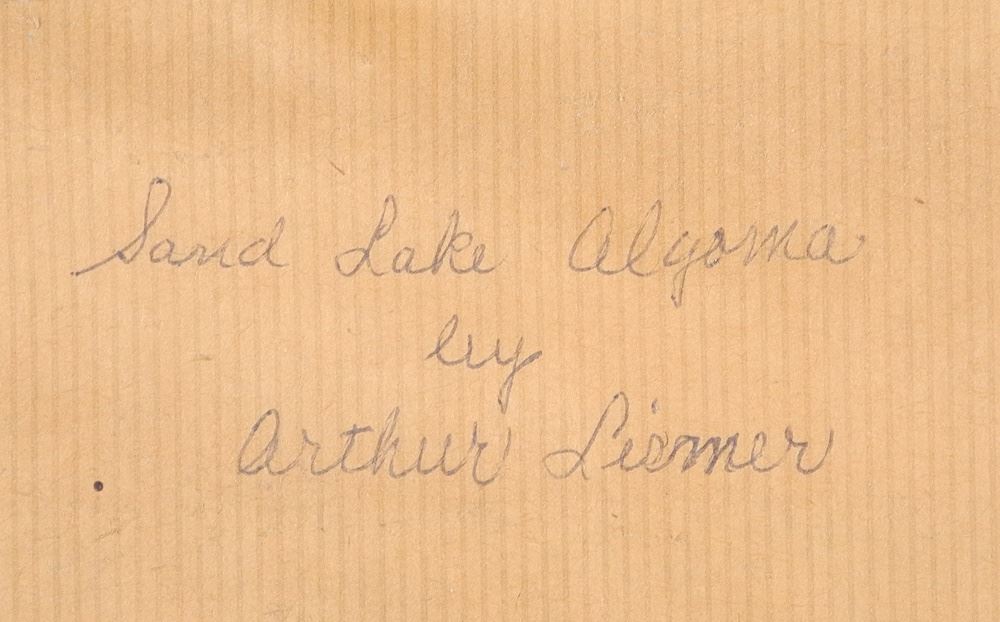 Sand Lake Algoma
by
Arthur Lismer